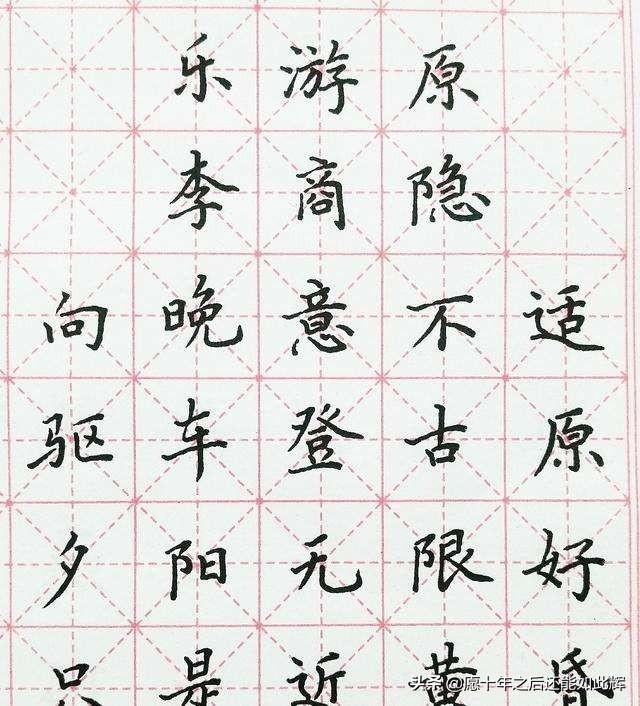 乐游原
李商隐
向晚意不适
驱车登古原
夕阳无限好
只是近黄昏
头条 @愿十年之后还能如此辉